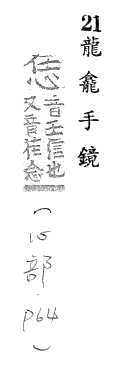 21龍龕手鏡
恁音壬信也
又音荏念
(心部.p64)